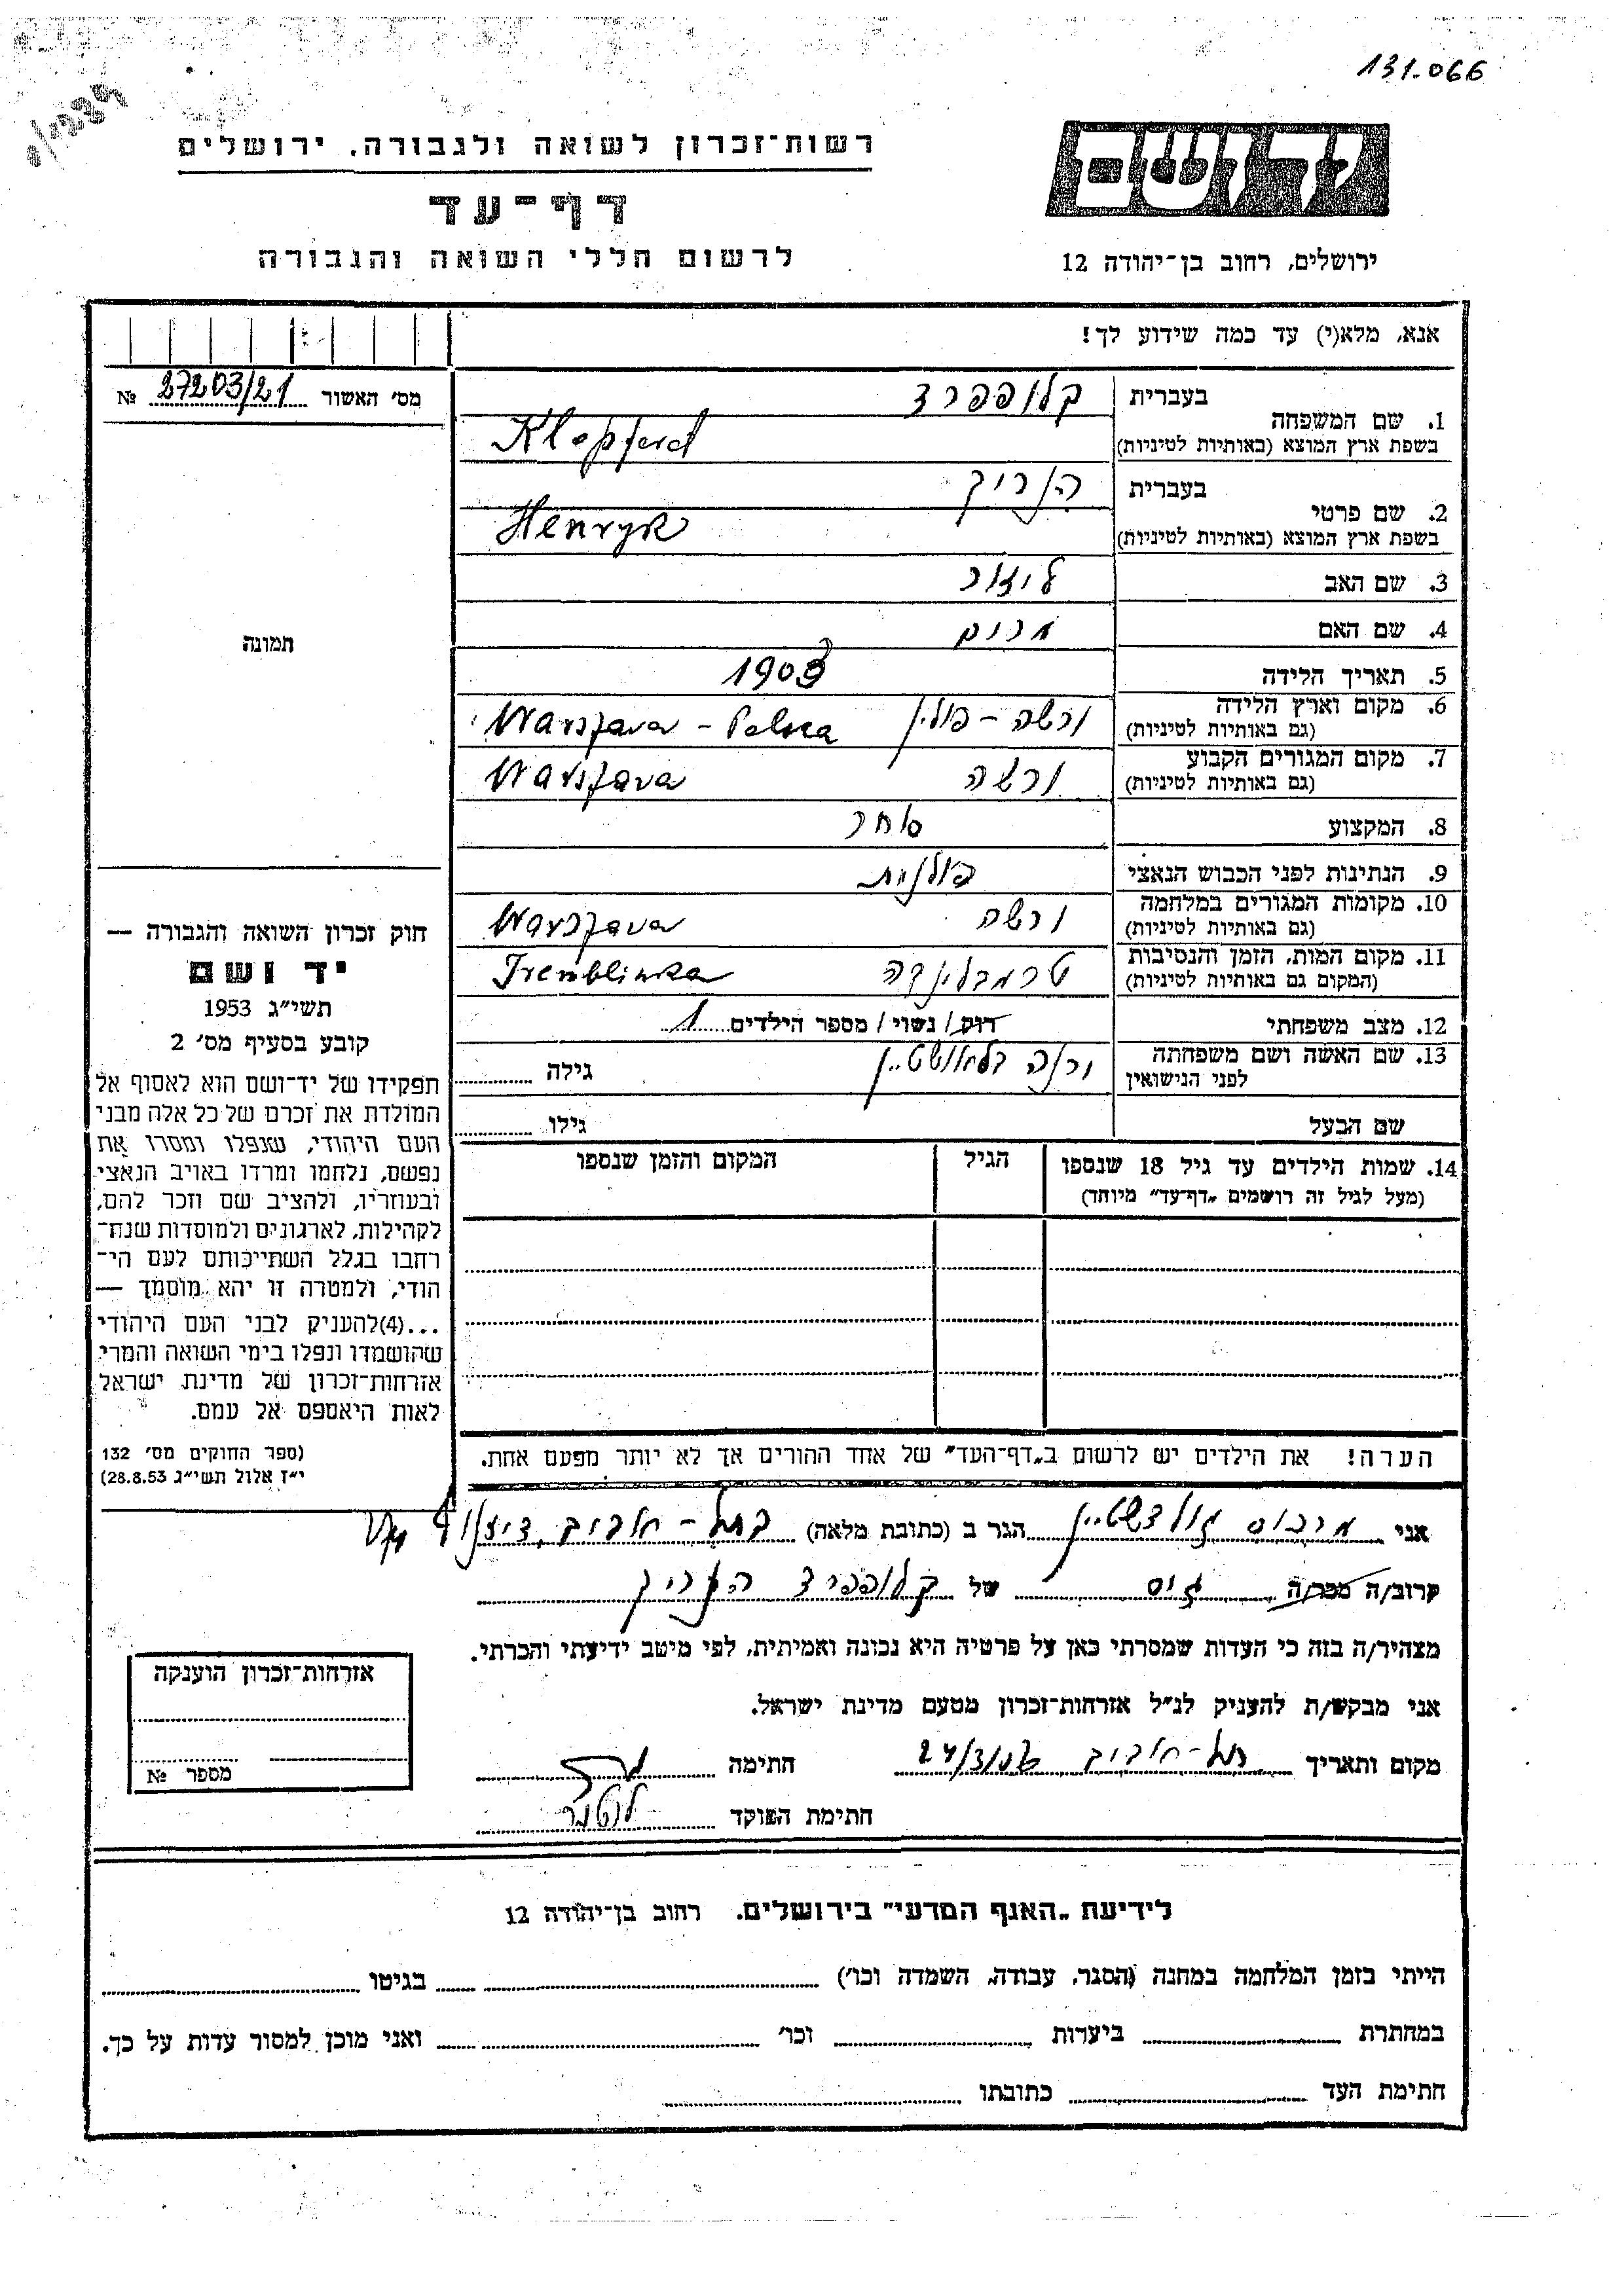 131.066
רשות־זכרון לשואה ולגבורה, ירושלים
יד ושם
דף־עד
לרשום חללי השואה והגבורה
ירושלים, רחוב בן־יהודה 12
אנא, מלא(י) עד כמה שידוע לך!
מס׳ האשור 27203/21 №
1. שם המשפחה
בעברית קלופפרד
בשפת ארץ המוצא (באותיות לטיניות) Klopferd
2. שם פרטי
בעברית הנריק
בשפת ארץ המוצא (באותיות לטיניות) Henryk
3. שם האב
4. שם האם מרים
תמונה
5. תאריך הלידה 1903
6. מקום וארץ הלידה ורשה – פולין Warszawa – Polska
(גם באותיות לטיניות)
7. מקום המגורים הקבוע ורשה Warszawa
(גם באותיות לטיניות)
8. המקצוע סוחר
9. הנתינות לפני הכבוש הנאצי פולנית
10. מקומות המגורים במלחמה ורשה Warszawa
(גם באותיות לטיניות)
11. מקום המות, הזמן והנסיבות טרמבלינקה Tremblinka
(המקום גם באותיות לטיניות)
12. מצב משפחתי רווק / נשוי / מספר הילדים 1
13. שם האשה ושם משפחתה
לפני הנישואין גילה
שם הבעל גילו
14. שמות הילדים עד גיל 18 שנספו הגיל המקום והזמן שנספו
(מעל לגיל זה רושמים „דף־עד״ מיוחד)
הערה! את הילדים יש לרשום ב„דף־העד״ של אחד ההורים אך לא יותר מפעם אחת.
חוק זכרון השואה והגבורה —
יד ושם
תשי״ג 1953
קובע בסעיף מס׳ 2
תפקידו של יד־ושם הוא לאסוף אל
המולדת את זכרם של כל אלה מבני
העם היהודי, שנפלו ומסרו את
נפשם, נלחמו ומרדו באויב הנאצי
ובעוזריו, ולהציב שם וזכר להם,
לקהילות, לארגונים ולמוסדות שנח־
רבו בגלל השתייכותם לעם הי־
הודי, ולמטרה זו יהא מוסמך —
...(4)להעניק לבני העם היהודי
שהושמדו ונפלו בימי השואה והמרי
אזרחות־זכרון של מדינת ישראל
לאות היאספם אל עמם.
(ספר החוקים מס׳ 132
י״ז אלול תשי״ג 28.8.53)
אני מרכוס גולדשטיין הגר ב (כתובת מלאה) בתל-אביב, דיזנגוף
קרוב/ה מכר/ה גיס של קלופפרד הנריק
מצהיר/ה בזה כי העדות שמסרתי כאן על פרטיה היא נכונה ואמיתית, לפי מיטב ידיעתי והכרתי.
אני מבקש/ת להעניק לנ״ל אזרחות־זכרון מטעם מדינת ישראל.
מקום ותאריך תל-אביב חתימה
חתימת הפוקד
אזרחות־זכרון הוענקה
מספר №
לידיעת „האגף המדעי״ בירושלים, רחוב בן־יהודה 12
הייתי בזמן המלחמה במחנה (הסגר, עבודה, השמדה וכו׳) בגיטו
במחתרת ביערות וכו׳ ואני מוכן למסור עדות על כך.
חתימת העד כתובתו